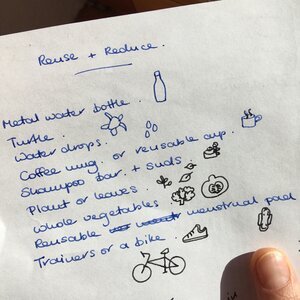 Reuse + Reduce.
Metal water bottle.
Turtle.
Water drops.
Coffee mug. or reusable cup.
Shampoo bar. + suds.
Plant or leaves.
whole vegetables.
Reusable menstrual pad
Trainers or a bike.